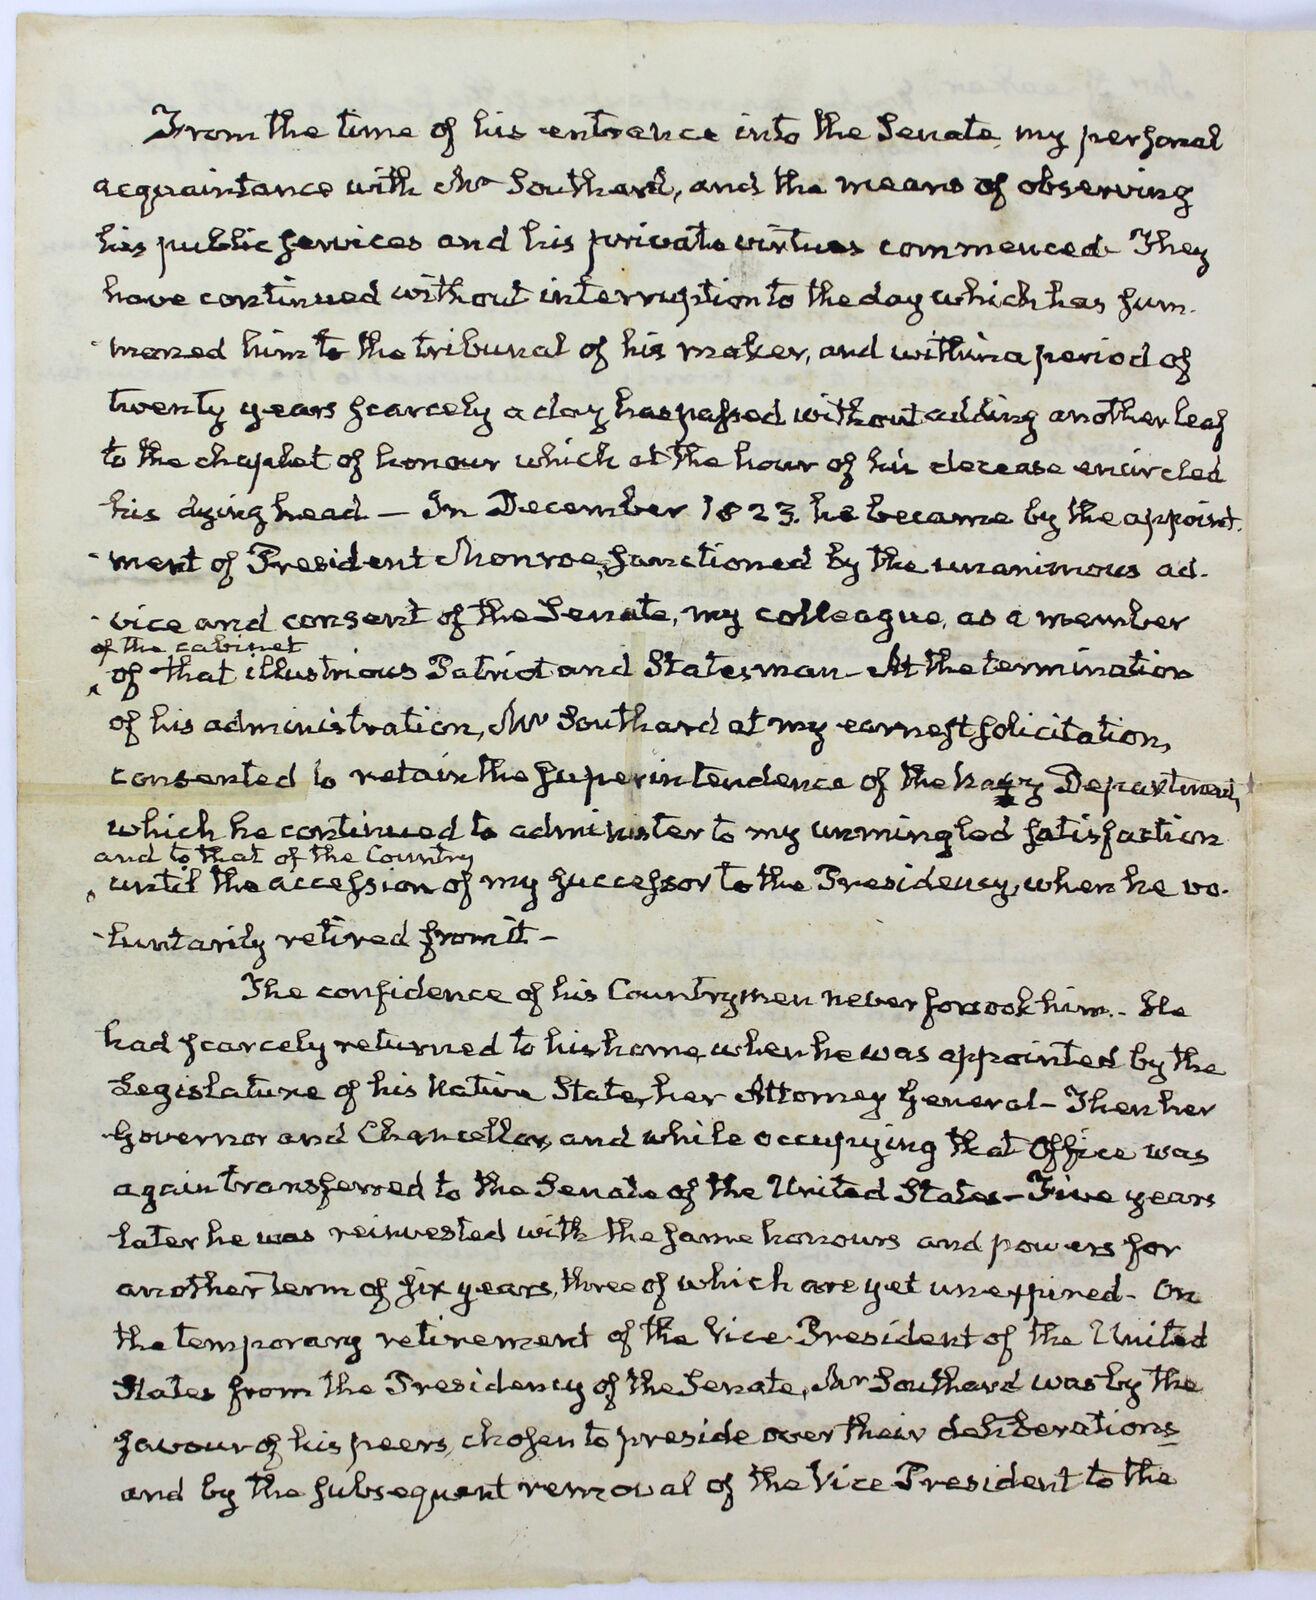 From the time of his entrance into the Senate, my personal
acquaintance with Mr Southard, and the means of observing
his public services and his private virtues commenced. They
have continued without interruption to the day which has sum-
-moned him to the tribunal of his maker, and within a period of
twenty years scarcely a day has passed without adding another leaf
to the chaplet of honour which at the hour of his decease encircled
his dying head — In December 1823. he became by the appoint-
-ment of President Monroe, sanctioned by the unanimous ad-
-vice and consent of the Senate, my colleague, as a member
of the cabinet
^ of that illustrious Patriot and Statesman — At the termination
of his administration, Mr Southard at my earnest solicitation,
consented to retain the superintendence of the Navy Department,
which he continued to administer to my unmingled satisfaction
and to that of the Country
^ until the accession of my successor to the Presidency, when he vo-
-luntarily retired from it —
The confidence of his Countrymen never forsook him. - He
had scarcely returned to his home, when he was appointed by the
Legislature of his Native State, her Attorney General — Then her
Governor and Chancellor, and while occupying that Office was
again transferred to the Senate of the United States — Five years
later he was reinvested with the same honours and powers for
another term of six years, three of which are yet unexpired - On
the temporary retirement of the Vice-President of the United
States from the Presidency of the Senate, Mr Southard was by the
favour of his peers, chosen to preside over their deliberations
and by the subsequent removal of the Vice President to the